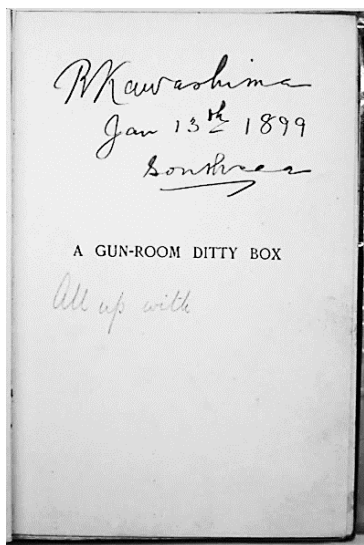 R Kawashima
Jan 13th 1899
Southsea
A GUN-ROOM DITTY BOX
All up with